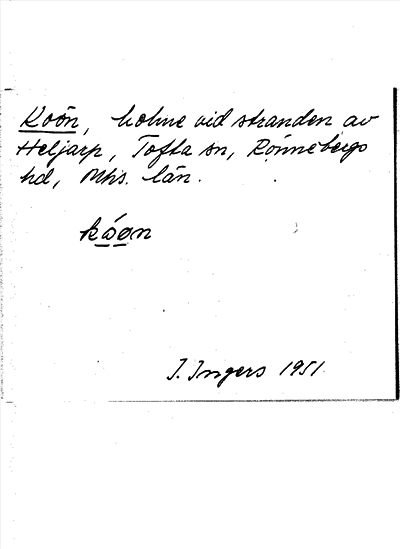 Koön, holme vid stranden av
Heljarp, Tofta sn, Rönnebergs
hd, Mhs. län.
kóøn
I. Ingers 1951